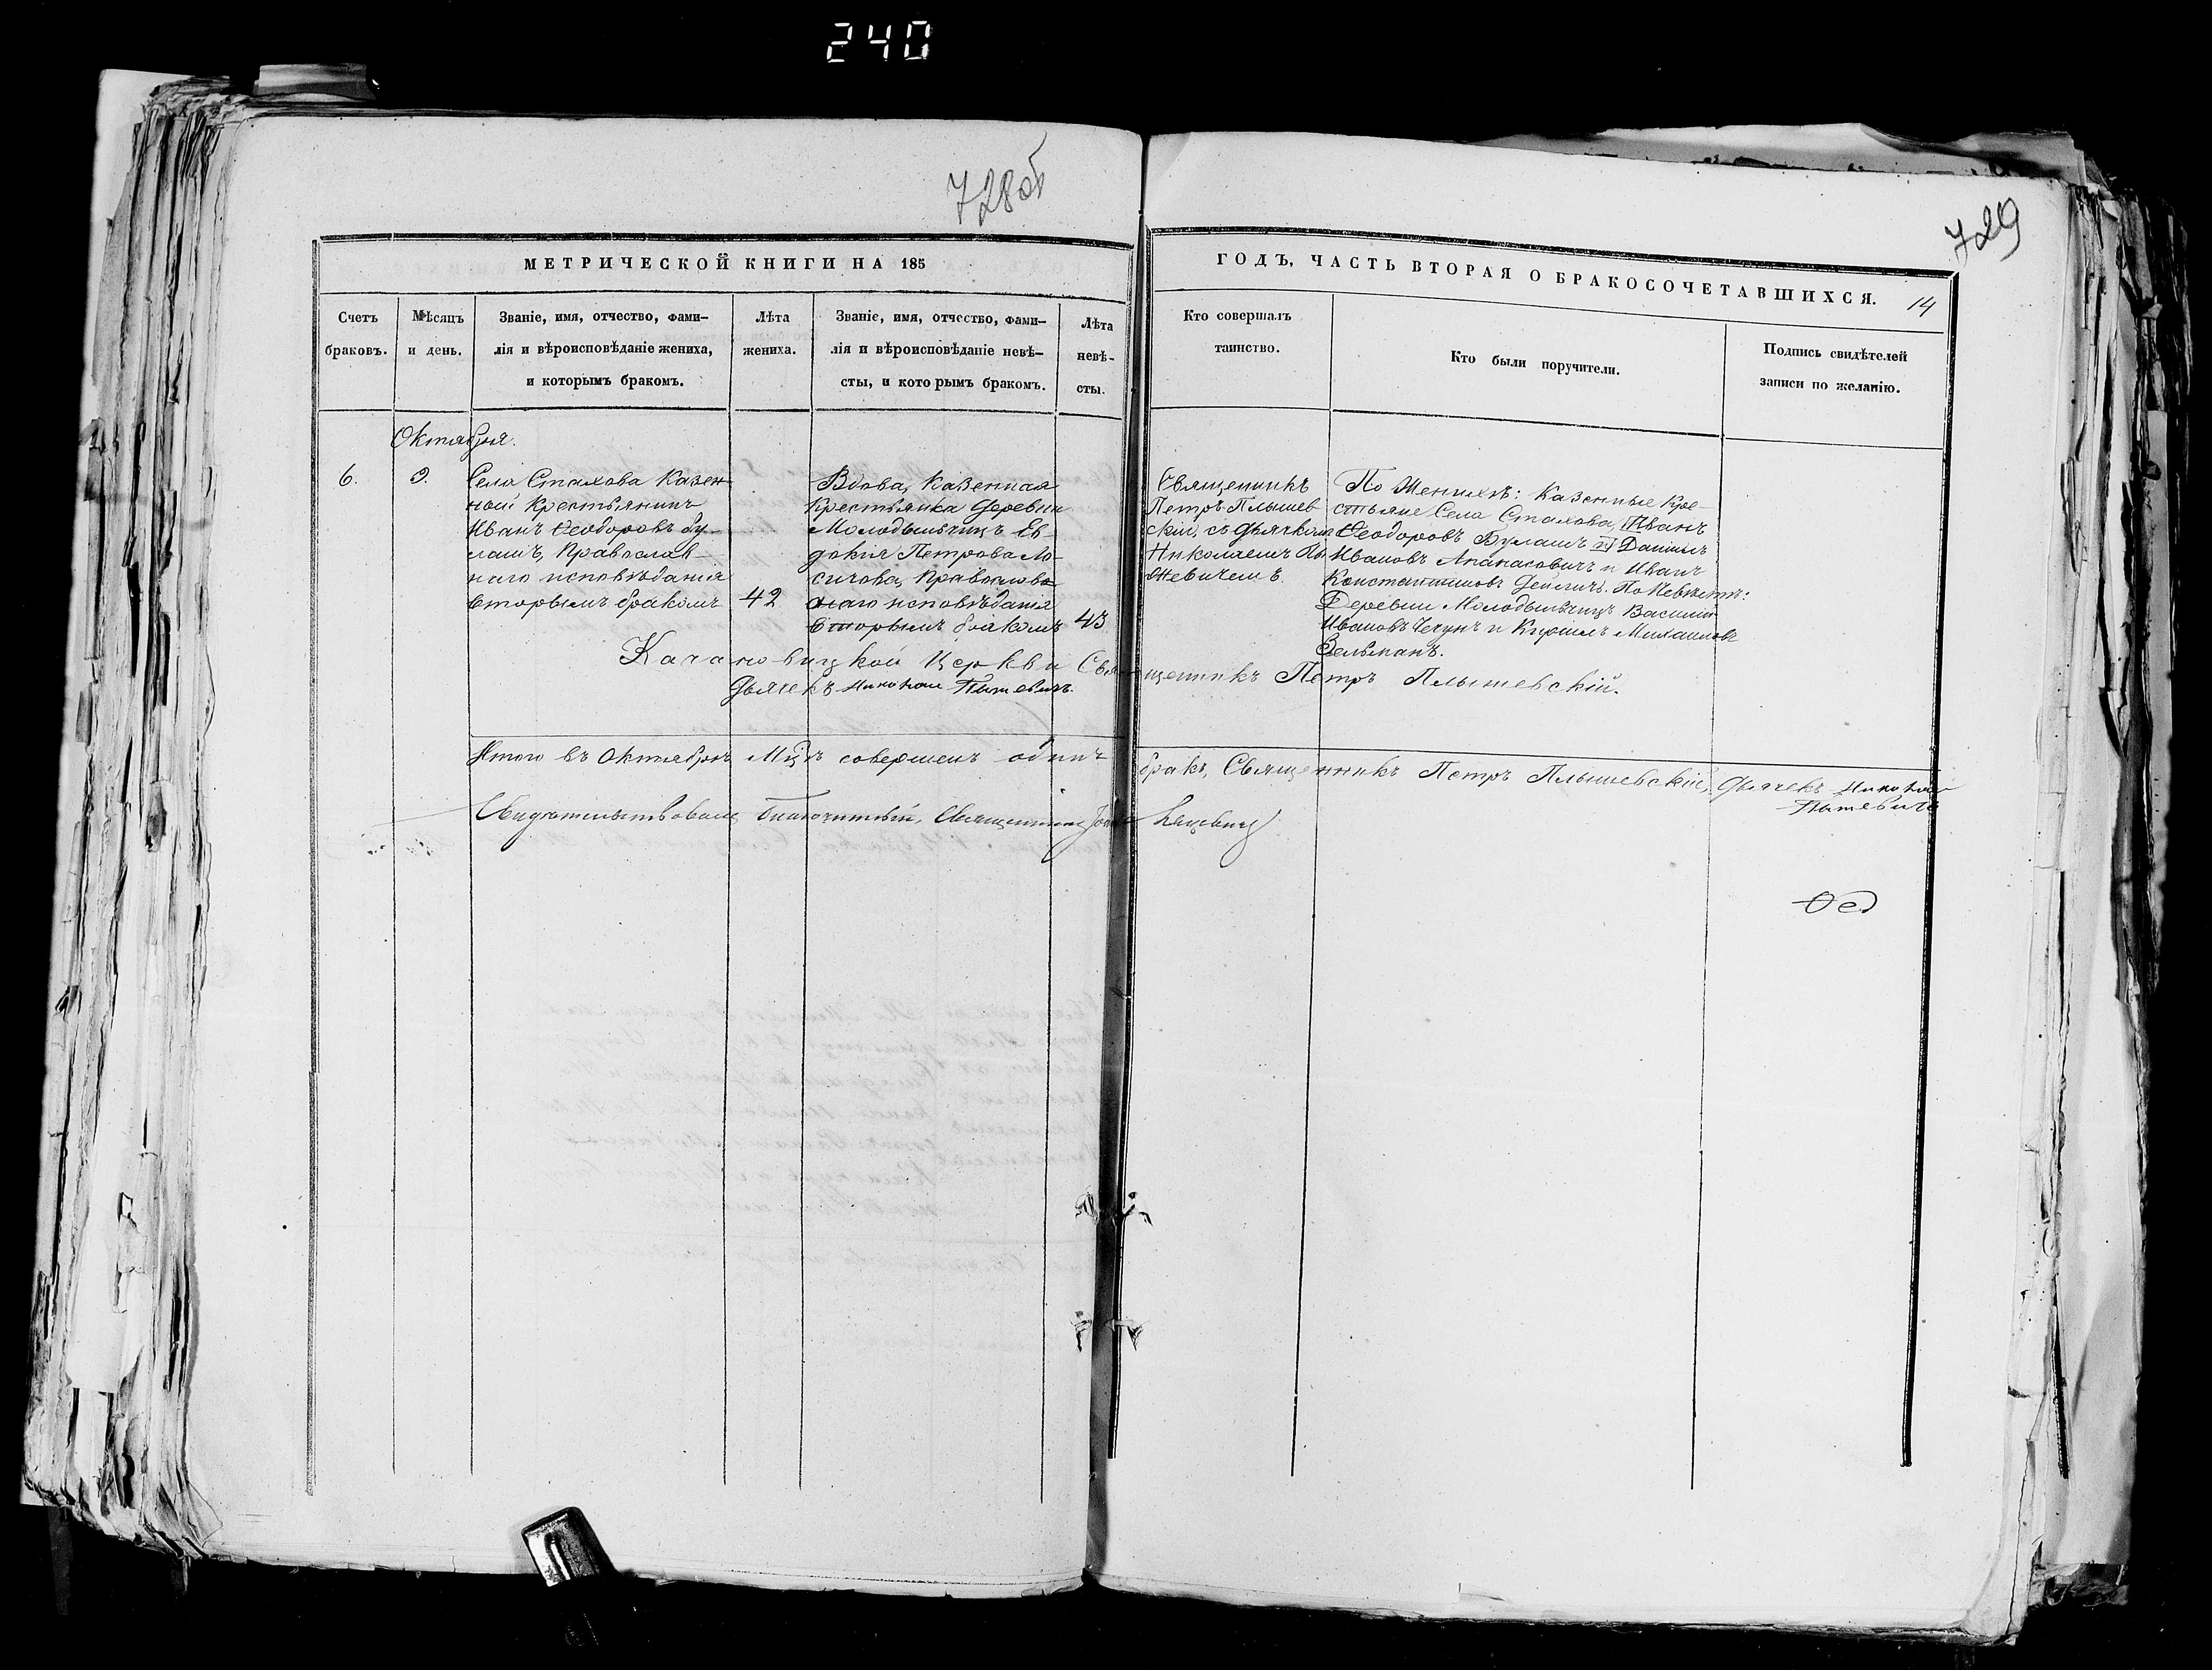 240
728об
729
МЕТРИЧЕСКОЙ КНИГИ НА 185
Счетъ
браковъ.
Мѣсяцъ
и день.
Званіе, имя, отчество, фами-
лія и вѣроисповѣданіе жениха,
и которымъ бракомъ.
Лѣта
жениха.
Званіе, имя, отчество, фами-
лія и вѣроисповѣданіе невѣ-
сты, и которымъ бракомъ.
Лѣта
невѣ-
сты.
ГОДЪ, ЧАСТЬ ВТОРАЯ О БРАКОСОЧЕТАВШИХСЯ.
14
Кто совершалъ
таинство.
Кто были поручители.
Подпись свидѣтелей
записи по желанію.
Октября.
6.
Села Стахова Казен-
ной Крестьянинъ
Иванъ Ѳеодоровъ Бу-
лашъ, Православ-
наго исповѣданія
вторымъ бракомъ
42
Вдова, Казенная
Крестьянка Деревни
Молодыльчицъ Ев-
докія Петрова Ло-
сичова, Православ-
наго исповѣданія
вторымъ бракомъ
43
Священникъ
Петръ Плышев
скій, съ Дьячкомъ
Николаемъ
По Женихѣ: Казенные Кре-
стьяне Села Стахова, Иванъ
Ѳеодоровъ Булашъ и Даніилъ
Ивановъ Апанасовичъ и Иванъ
Константиновъ Дейличъ. По Невѣстѣ:
Деревни Молодыльчицъ Василій
Ивановъ Чечунъ и Кириллъ Михаиловъ
Вельманъ.
Качановицкой Церкви Священникъ Петръ Плышевскій.
Дьячекъ Николай
Итого въ Октябрѣ Мцѣ совершенъ одинъ бракъ, Священникъ Петръ Плышевскій, Дьячекъ Николай
Свидѣтельствовалъ Благочинный, Священникъ